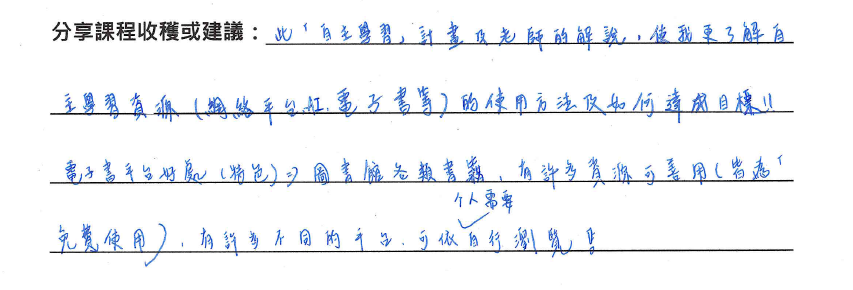 分享課程收穫或建議：此「自主學習」計畫及老師的解說，使我更了解自
主學習資源（網絡平台、電子書等）的使用方法及如何達成目標!!
電子書平台好處（特色）⇒圖書館各類書籍，有許多資源可善用（皆為
個人需要
免費使用），有許多不同的平台，可依自行瀏覽!!